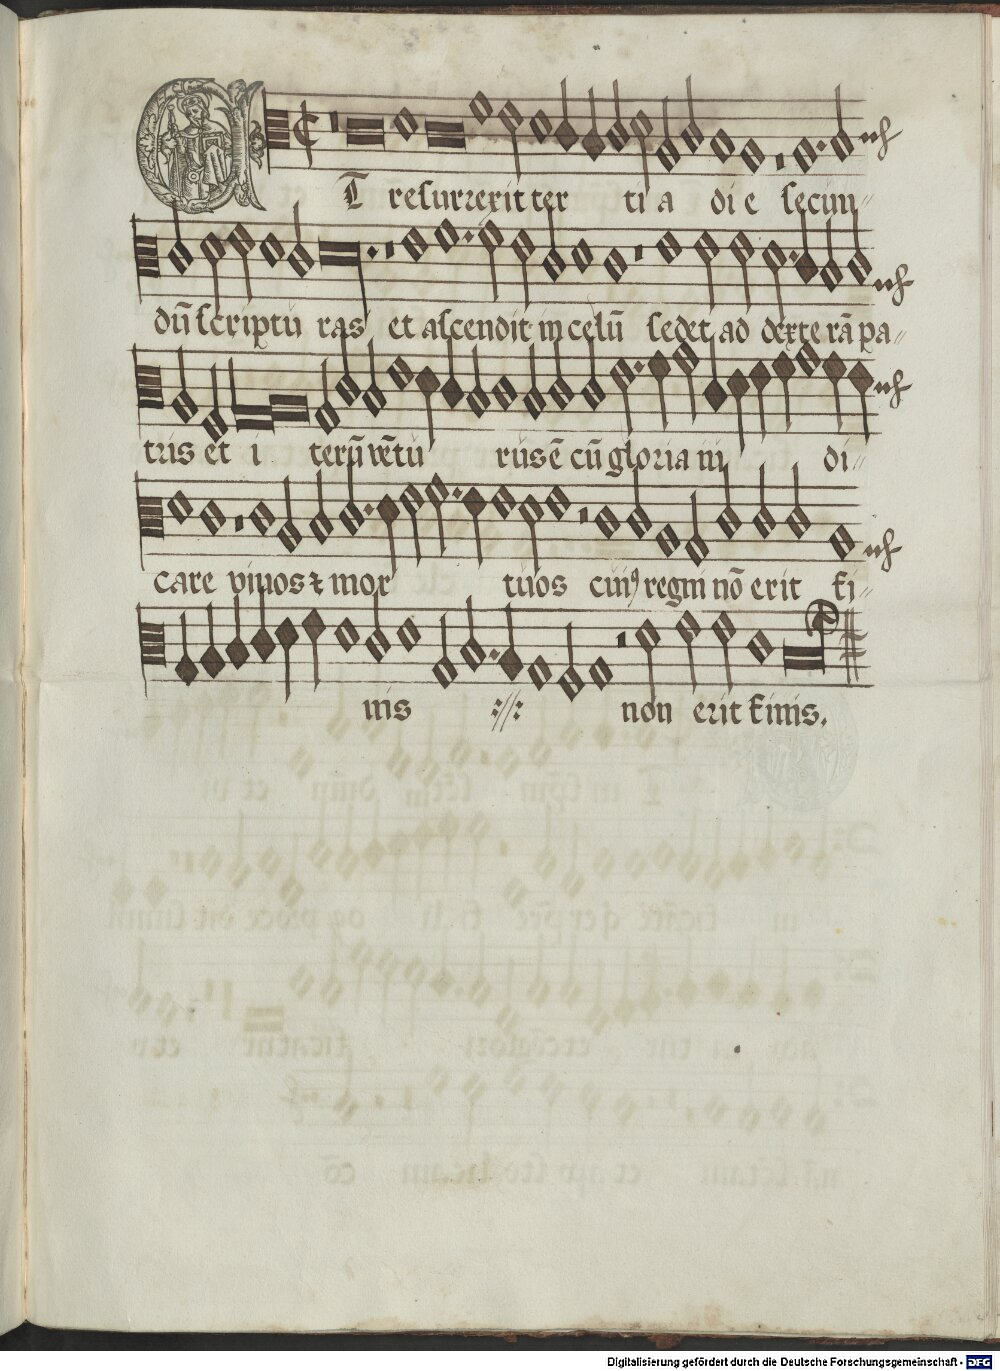 Et resurrexit ter ti a di e secun//
dū scriptu ras et ascendit in celū sedet ad dexte rā pa//
tris et i terū vētu rus ē cū gloria iu di//
care vivos ⁊ mor tuos cui⁹ regni nō erit fi//
nis :||: non erit finis.
Digitalisierung gefördert durch die Deutsche Forschungsgemeinschaft - DFG